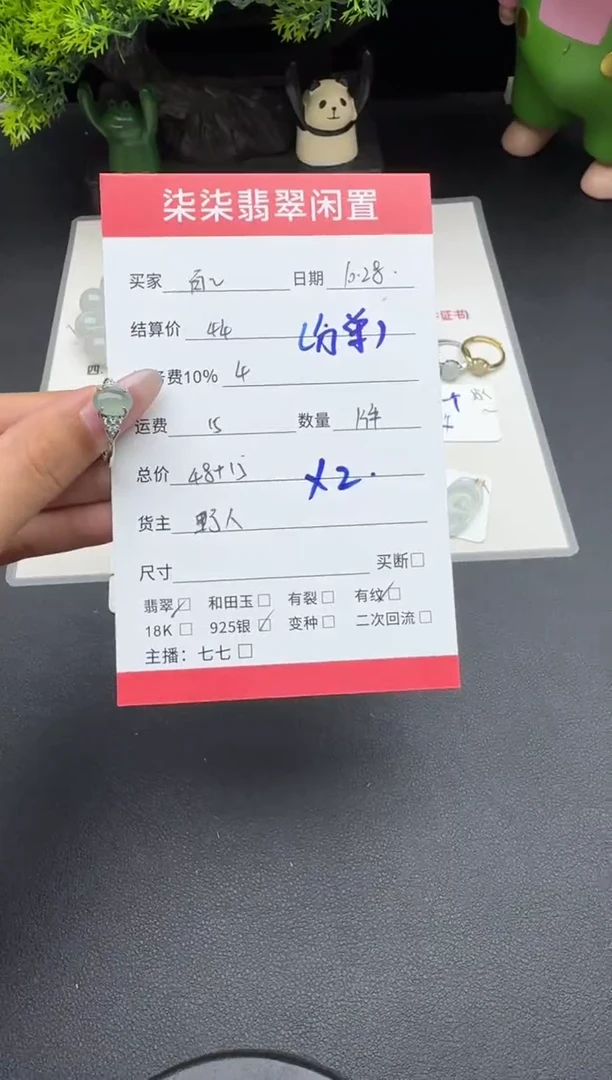 柒柒翡翠闲置
买家 百乙 日期 10.28.
结算价 44 (分单)
费10% 4
运费 15 数量 1件
总价 48+15 X2.
货主 野人
尺寸 买断
翡翠 和田玉 有裂 有纹
18K 925银 变种 二次回流
主播：七七
证书)
四.